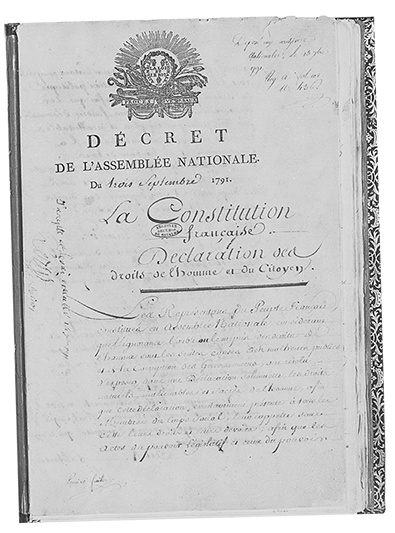 DÉCRET
DE L'ASSEMBLÉE NATIONALE.
Du trois Septembre 1791.
La Constitution
française.
Déclaration des
droits de l'homme et du Citoyen.
Les Représentans du Peuple Français,
constitués en Assemblée Nationale, considérant
que l'ignorance, l'oubli ou le mépris des droits de
l'homme sont les seules causes des malheurs publics
et de la corruption des Gouvernemens, ont résolu
d'exposer, dans une Déclaration solemnelle, les droits
naturels, inaliénables et sacrés de l'homme, afin
que cette déclaration, constamment présente à tous les
membres du corps social, leur rappelle sans
cesse leurs droits et leurs devoirs; afin que les
actes du pouvoir législatif et ceux du pouvoir